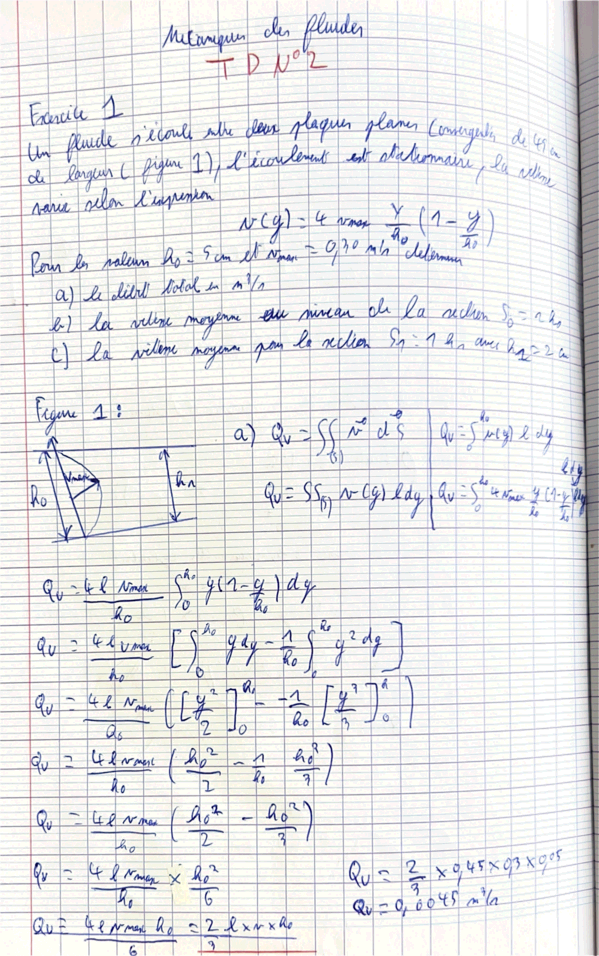 Mécanique des fluides
TD N°2
Exercice 1
Un fluide s'écoule entre deux plaques planes Convergentes de 45 cm
de largeur (figure 1), l'écoulement est stationnaire, la vitesse
varie selon l'expression
v(y) = 4 vmax y/h₀ (1 - y/h₀)
Pour les valeurs h₀ = 5 cm et vmax = 0,30 m/s determiner
a) le débit total en m³/s
b) la vitesse moyenne au niveau de la section S₀ = l h₀
c) la vitesse moyenne pour la section S₁ = l h₁ avec h₁ = 2 cm
Figure 1 :
h₀ vmax h₁
a) Qv = ∬(S) v⃗ dS⃗
Qv = ∬(S) v(y) l dy
Qv = ∫₀^h₀ v(y) l dy
l dy
Qv = ∫₀^h₀ 4 vmax y/h₀ (1 - y/h₀) l dy
Qv = 4 l vmax / h₀ ∫₀^h₀ y(1 - y/h₀) dy
Qv = 4 l vmax / h₀ [∫₀^h₀ y dy - 1/h₀ ∫₀^h₀ y² dy]
Qv = 4 l vmax / h₀ ([y²/2]₀^h₀ - -1/h₀ [y³/3]₀^h)
Qv = 4 l vmax / h₀ (h₀²/2 - 1/h₀ h₀³/3)
Qv = 4 l vmax / h₀ (h₀²/2 - h₀²/3)
Qv = 4 l vmax / h₀ × h₀²/6
Qv = 4 l vmax h₀ / 6 = 2/3 l × v × h₀
Qv = 2/3 × 0,45 × 0,3 × 0,05
Qv = 0,0045 m³/s